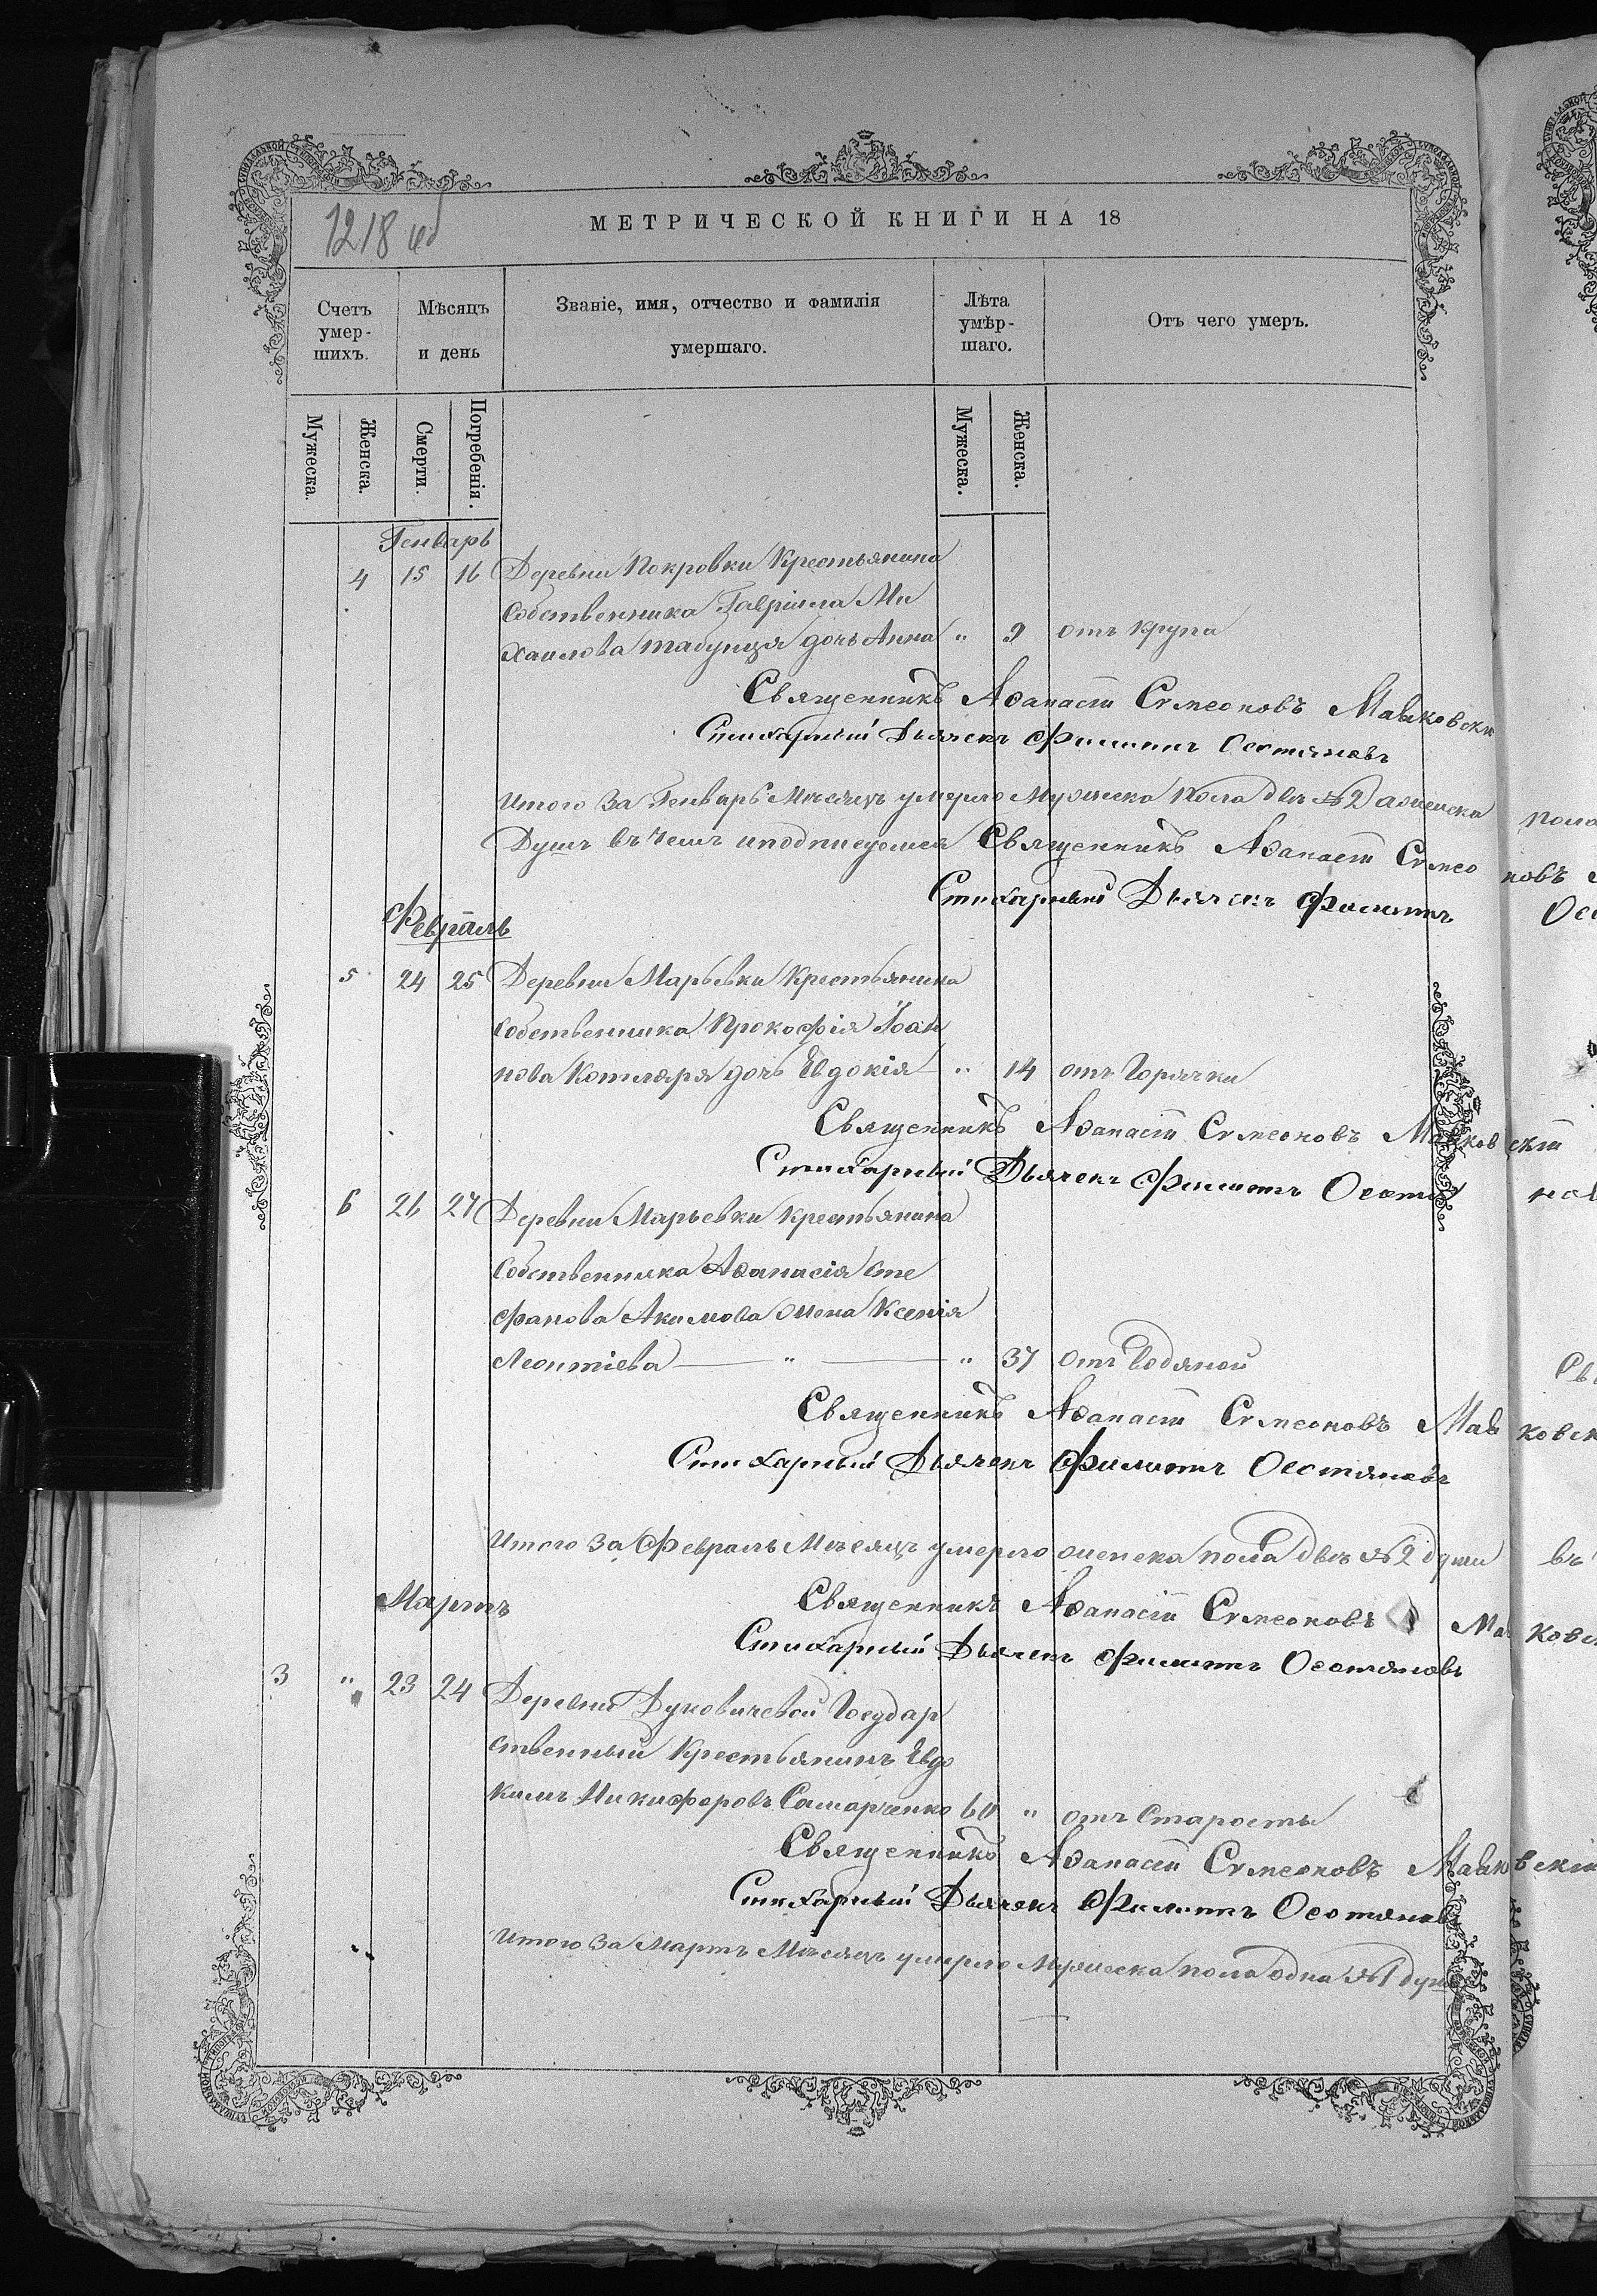 1218 об
МЕТРИЧЕСКОЙ КНИГИ НА 18
Счетъ умер-шихъ.
Мѣсяцъ и день
Званіе, имя, отчество и фамилія умершаго.
Лѣта умѣр-шаго.
Отъ чего умеръ.
Мужеска.
Женска.
Смерти.
Погребенія.
Мужеска.
Женска.
Генварь
4 15 16 Деревни Покровки Крестьянина
Собственника Гавріила Ми
хаилова табунця дочь Анна " 9 отъ крупа
Священникъ Аѳанасій Сѵмеоновъ
Стихарный Дьячекъ Филиппъ
Итого за Генварь Мѣсяцъ умерло Мужеска пола двѣ № 2 а женска
Душъ въ чемъ и подписуемся Священникъ Аѳанасій Сѵмео
Стихарный Дьячекъ Филиппъ
Февраль
5 24 25 Деревни Марьевки Крестьянина
Собственника Прокофія Іоан
нова Котляра дочь Евдокія " 14 отъ Горячки
Священникъ Аѳанасій Сѵмеоновъ
Стихарный Дьячекъ Филиппъ
6 26 27 Деревни Марьевки Крестьянина
Собственника Аѳанасія Сте
фанова Акимова жена Ксенія
Леонтіева — " — " 37 отъ Водяной
Священникъ Аѳанасій Сѵмеоновъ
Стихарный Дьячекъ Филиппъ
Итого за Февраль Мѣсяцъ умерло женска пола двѣ № 2 души въ
Мартъ
Священникъ Аѳанасій Сѵмеоновъ
Стихарный Дьячекъ Филиппъ
3 " 23 24 Деревни Государ
ственный Крестьянинъ Евдо
кимъ Никифоровъ Самарченко 60 " отъ Старости
Священникъ Аѳанасій Сѵмеоновъ
Стихарный Дьячекъ Филиппъ
Итого за Мартъ Мѣсяцъ умерло Мужеска пола одна № 1 душа